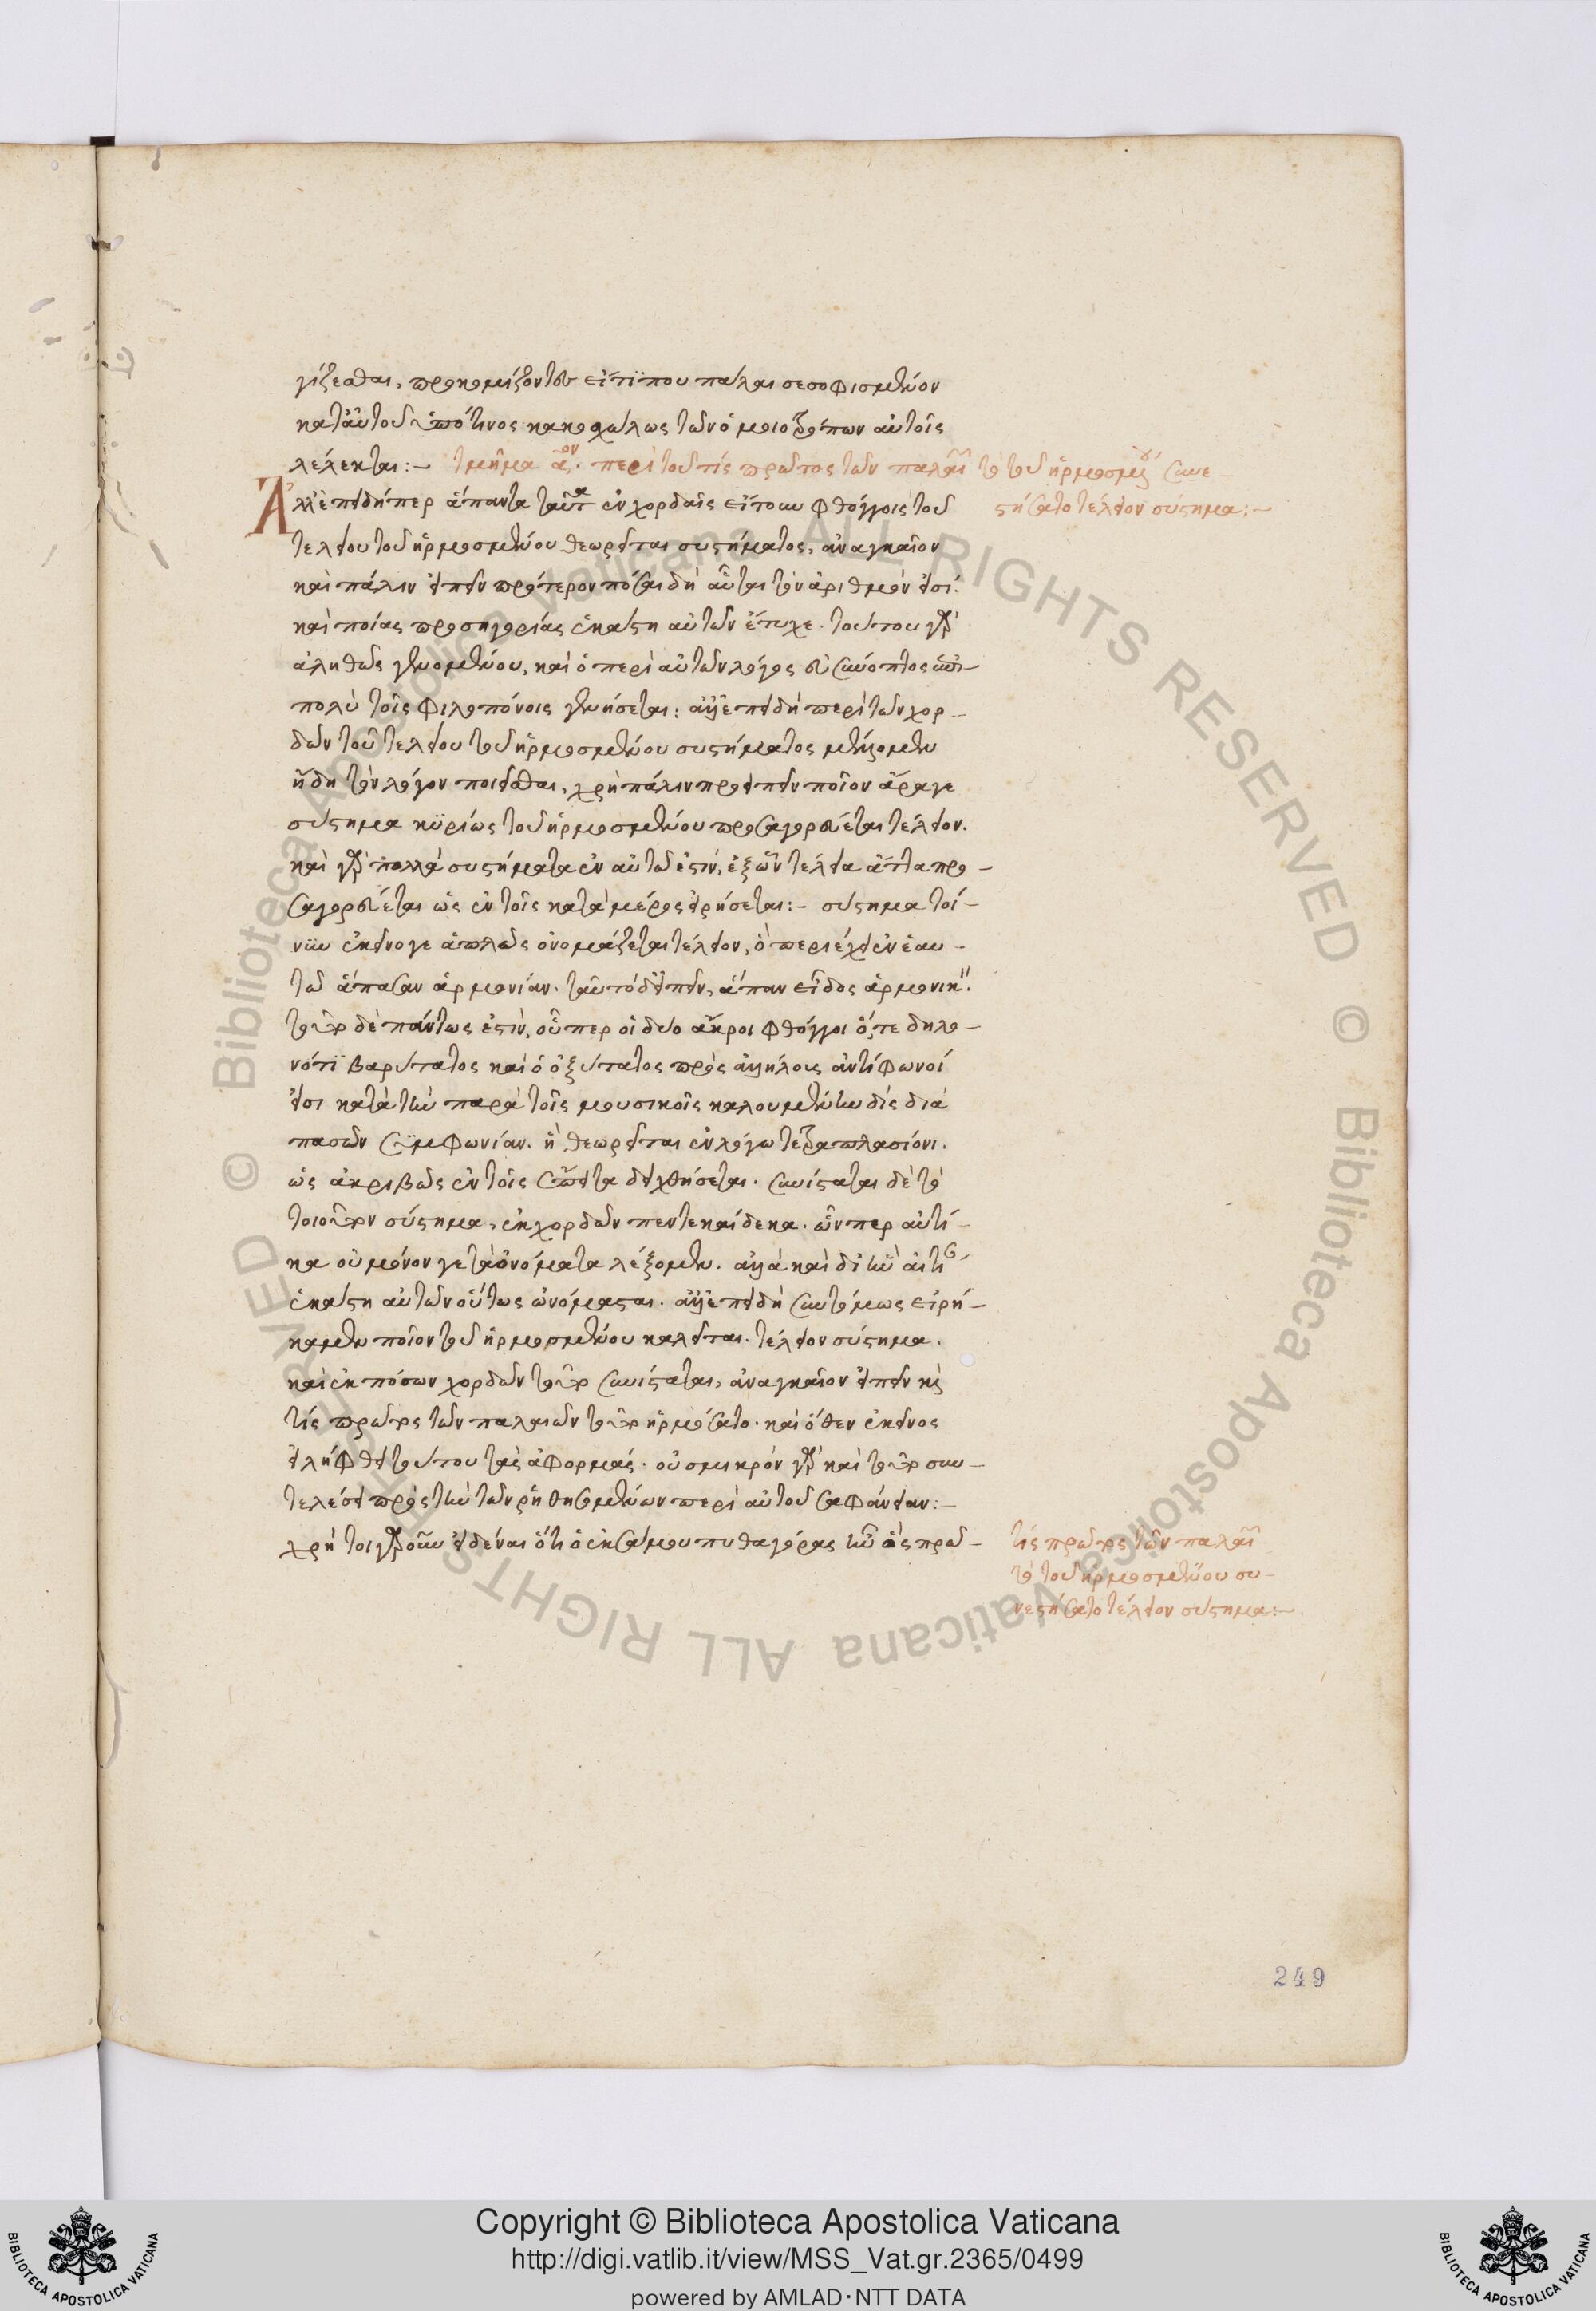 γίζεσθαι, προκομίζοντες εἴ τί που πάλαι σεσοφισμένον
κατ' αὐτοῦ ὑπό τινος κακοσχόλως τῶν ὁμοιοτρόπων αὐτοῖς
λέλεκται:– τμῆμα αον. περὶ τοῦ τίς πρῶτος τῶν παλαι τὸ τοῦ ἡρμοσμένου συνε–
στήσατο τέλειον σύστημα:–
Ἀλλ' ἐπειδήπερ ἅπαντα ταῦτα ἐν χορδαῖς εἴτουν φθόγγοις τοῦ
τελείου τοῦ ἡρμοσμένου θεωρεῖται συστήματος, ἀναγκαῖον
καὶ πάλιν εἰπεῖν πρότερον πόσαι δὴ αὗται τὸν ἀριθμόν εἰσί.
καὶ ποίας προσηγορίας ἑκάστη αὐτῶν ἔτυχε. τούτου γὰρ
ἀληθῶς γενομένου, καὶ ὁ περὶ αὐτῶν λόγος εὐσύνοπτος ἐπι–
πολὺ τοῖς φιλοπόνοις γενήσεται: ἀλλ' ἐπειδὴ περὶ τῶν χορ–
δῶν τοῦ τελείου τοῦ ἡρμοσμένου συστήματος μέλλομεν
ἤδη τὸν λόγον ποιεῖσθαι, χρὴ πάλιν προειπεῖν ποῖον ἄρα γε
σύστημα κυρίως τοῦ ἡρμοσμένου προσαγορεύεται τέλειον.
καὶ γὰρ πολλὰ συστήματα ἐν αὐτῶ ἐστίν, ἐξ ὧν τέλεια ἄττα προ–
σαγορεύεται ὡς ἐν τοῖς κατὰ μέρος εἰρήσεται:– σύστημα τοί–
νυν ἐκεῖνό γε ἁπλῶς ὀνομάζεται τέλειον, ὃ περιέχει ἐν ἑαυ–
τῶ ἅπασαν ἁρμονίαν. ταὐτὸ δ' εἰπεῖν, ἅπαν εἶδος ἁρμονικόν.
τοῦτο δὲ πάντως ἐστίν, οὗπερ οἱ δύο ἄκροι φθόγγοι ὅ, τε δηλο–
νότι βαρύτατος καὶ ὁ ὀξύτατος πρὸς ἀλλήλους ἀντίφωνοί
εἰσι κατὰ τὴν παρὰ τοῖς μουσικοῖς καλουμένην δὶς διὰ
πασῶν συμφωνίαν. ἢ θεωρεῖται ἐν λόγω τετραπλασίονι.
ὡς ἀκριβῶς ἐν τοῖς ἔπειτα δειχθήσεται. συνίσταται δὲ τὸ
τοιοῦτον σύστημα, ἐκ χορδῶν πεντεκαίδεκα. ὧνπερ αὐτί–
κα οὐ μόνον γε τὰ ὀνόματα λέξομεν. ἀλλὰ καὶ δι' ἣν αἰτίαν
ἑκάστη αὐτῶν οὕτως ὠνόμασται. ἀλλ' ἐπειδὴ συντόμως εἰρή–
καμεν ποῖον τοῦ ἡρμοσμένου καλεῖται τέλειον σύστημα.
καὶ ἐκ πόσων χορδῶν τοῦτο συνίσταται, ἀναγκαῖον εἰπεῖν καὶ
τίς πρῶτος τῶν παλαιῶν τοῦτο ἡρμόσατο. καὶ ὅθεν ἐκεῖνος
εἰλήφει τούτου τὰς ἀφορμάς. οὐ σμικρὸν γὰρ καὶ τοῦτο συν–
τελέσει πρὸς τὴν τῶν ῥηθησομένων περὶ αὐτοῦ σαφάνειαν:–
χρὴ τοιγαροῦν εἰδέναι ὅτι ὁ ἐκ Σάμου πυθαγόρας ἦν ὃς πρῶ–
τίς πρῶτος τῶν παλαι
τὸ τοῦ ἡρμοσμένου συ–
νεστήσατο τέλειον σύστημα:–
249
Copyright © Biblioteca Apostolica Vaticana
http://digi.vatlib.it/view/MSS_Vat.gr.2365/0499
powered by AMLAD·NTT DATA
BIBLIOTECA APOSTOLICA VATICANA
BIBLIOTECA APOSTOLICA VATICANA
© Biblioteca Apostolica Vaticana ALL RIGHTS RESERVED © Biblioteca Apostolica Vaticana ALL RIGHTS RESERVED